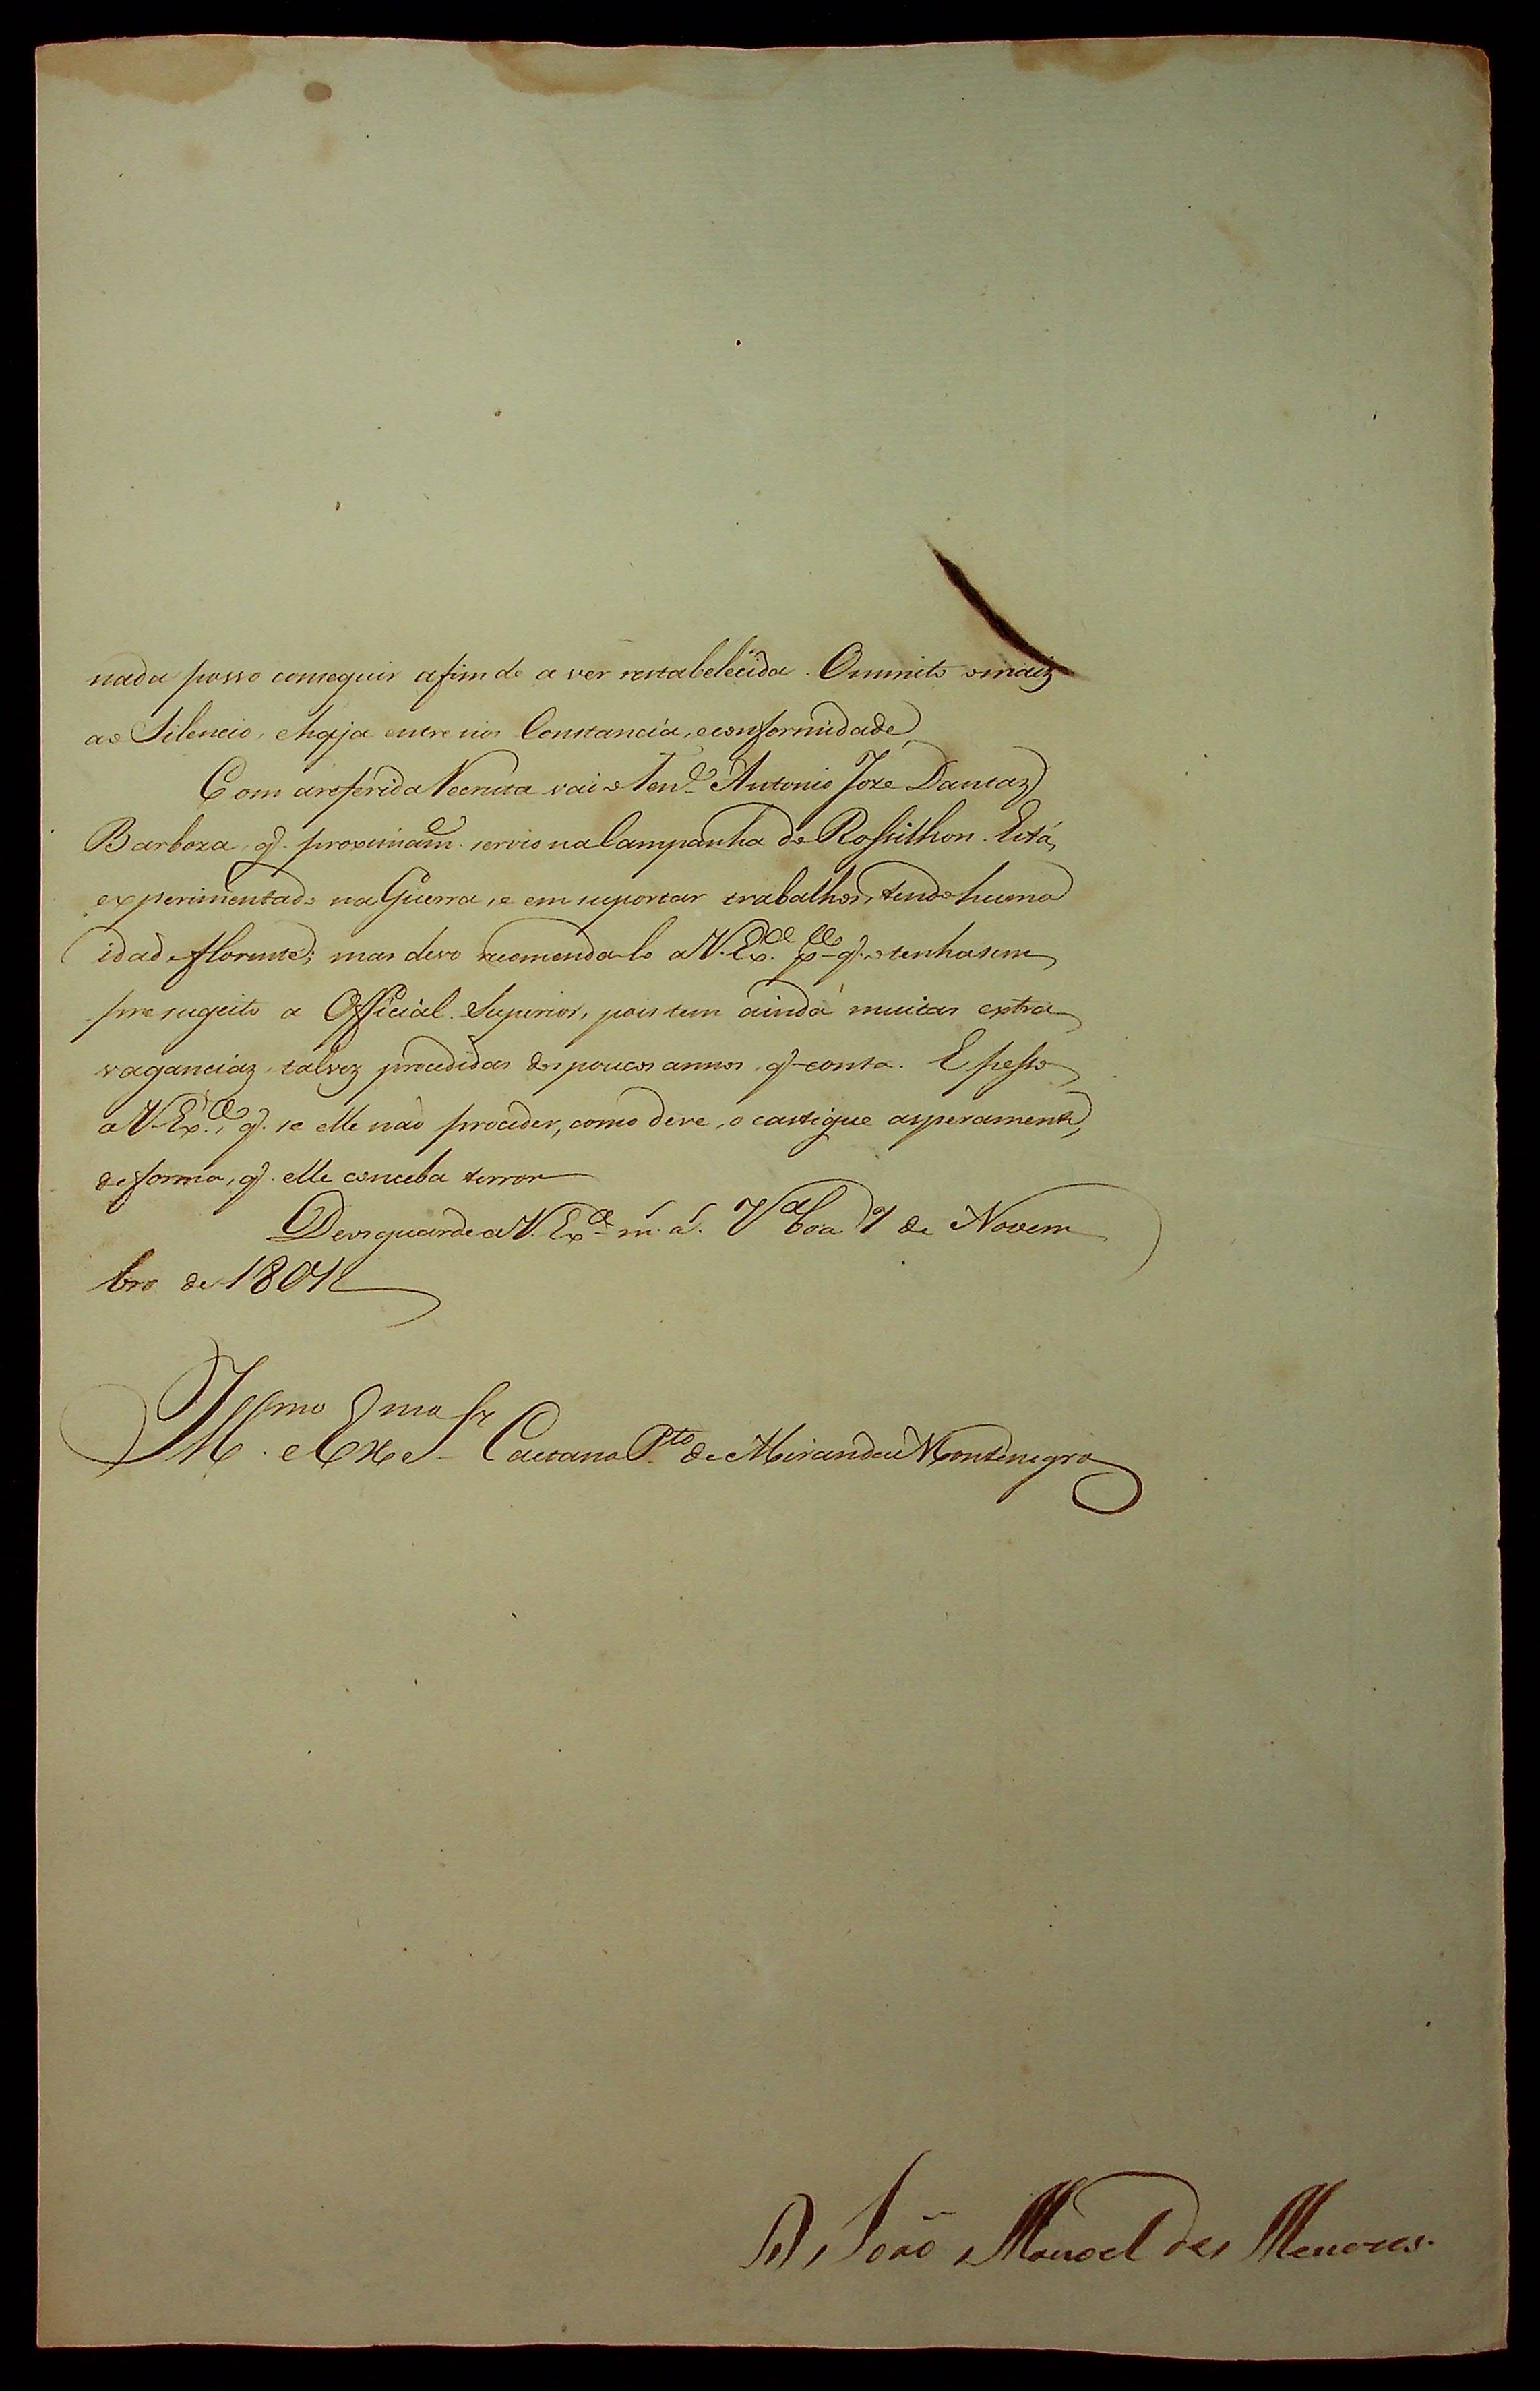 nada posso conseguir afim de a ver restabelecida. Ommito o maiz
ao Silencio, e haja entre nos Constancia, e conformidade
Com a referida Recruta vai o Ten.e Antonio Joze Dantaz
Barboza, q. proximam.e servio na Campanha de Rossilhon. Está
experimentado na Guerra, e em suportar trabalhos, tendo huma
idade florente; mas devo recomendalo a V. Ex.ca p.a q. o tenha sem
pre sugeito a Official Superior, pois tem ainda muitas extra
vaganciaz, talvez procedidas dos poucos annos, q. conta. E pesso
a V. Ex.ca, q. se elle não proceder, como deve, o castigue asperamente,
de forma, q. elle conceba terror
Deos guarde a V. Ex.ca m. a. V.a boa 7 de Novem
bro de 1804
Ill.mo e Ex.mo Sr Caetano P.to de Miranda Montenegro
D. João Manoel de Menezes.